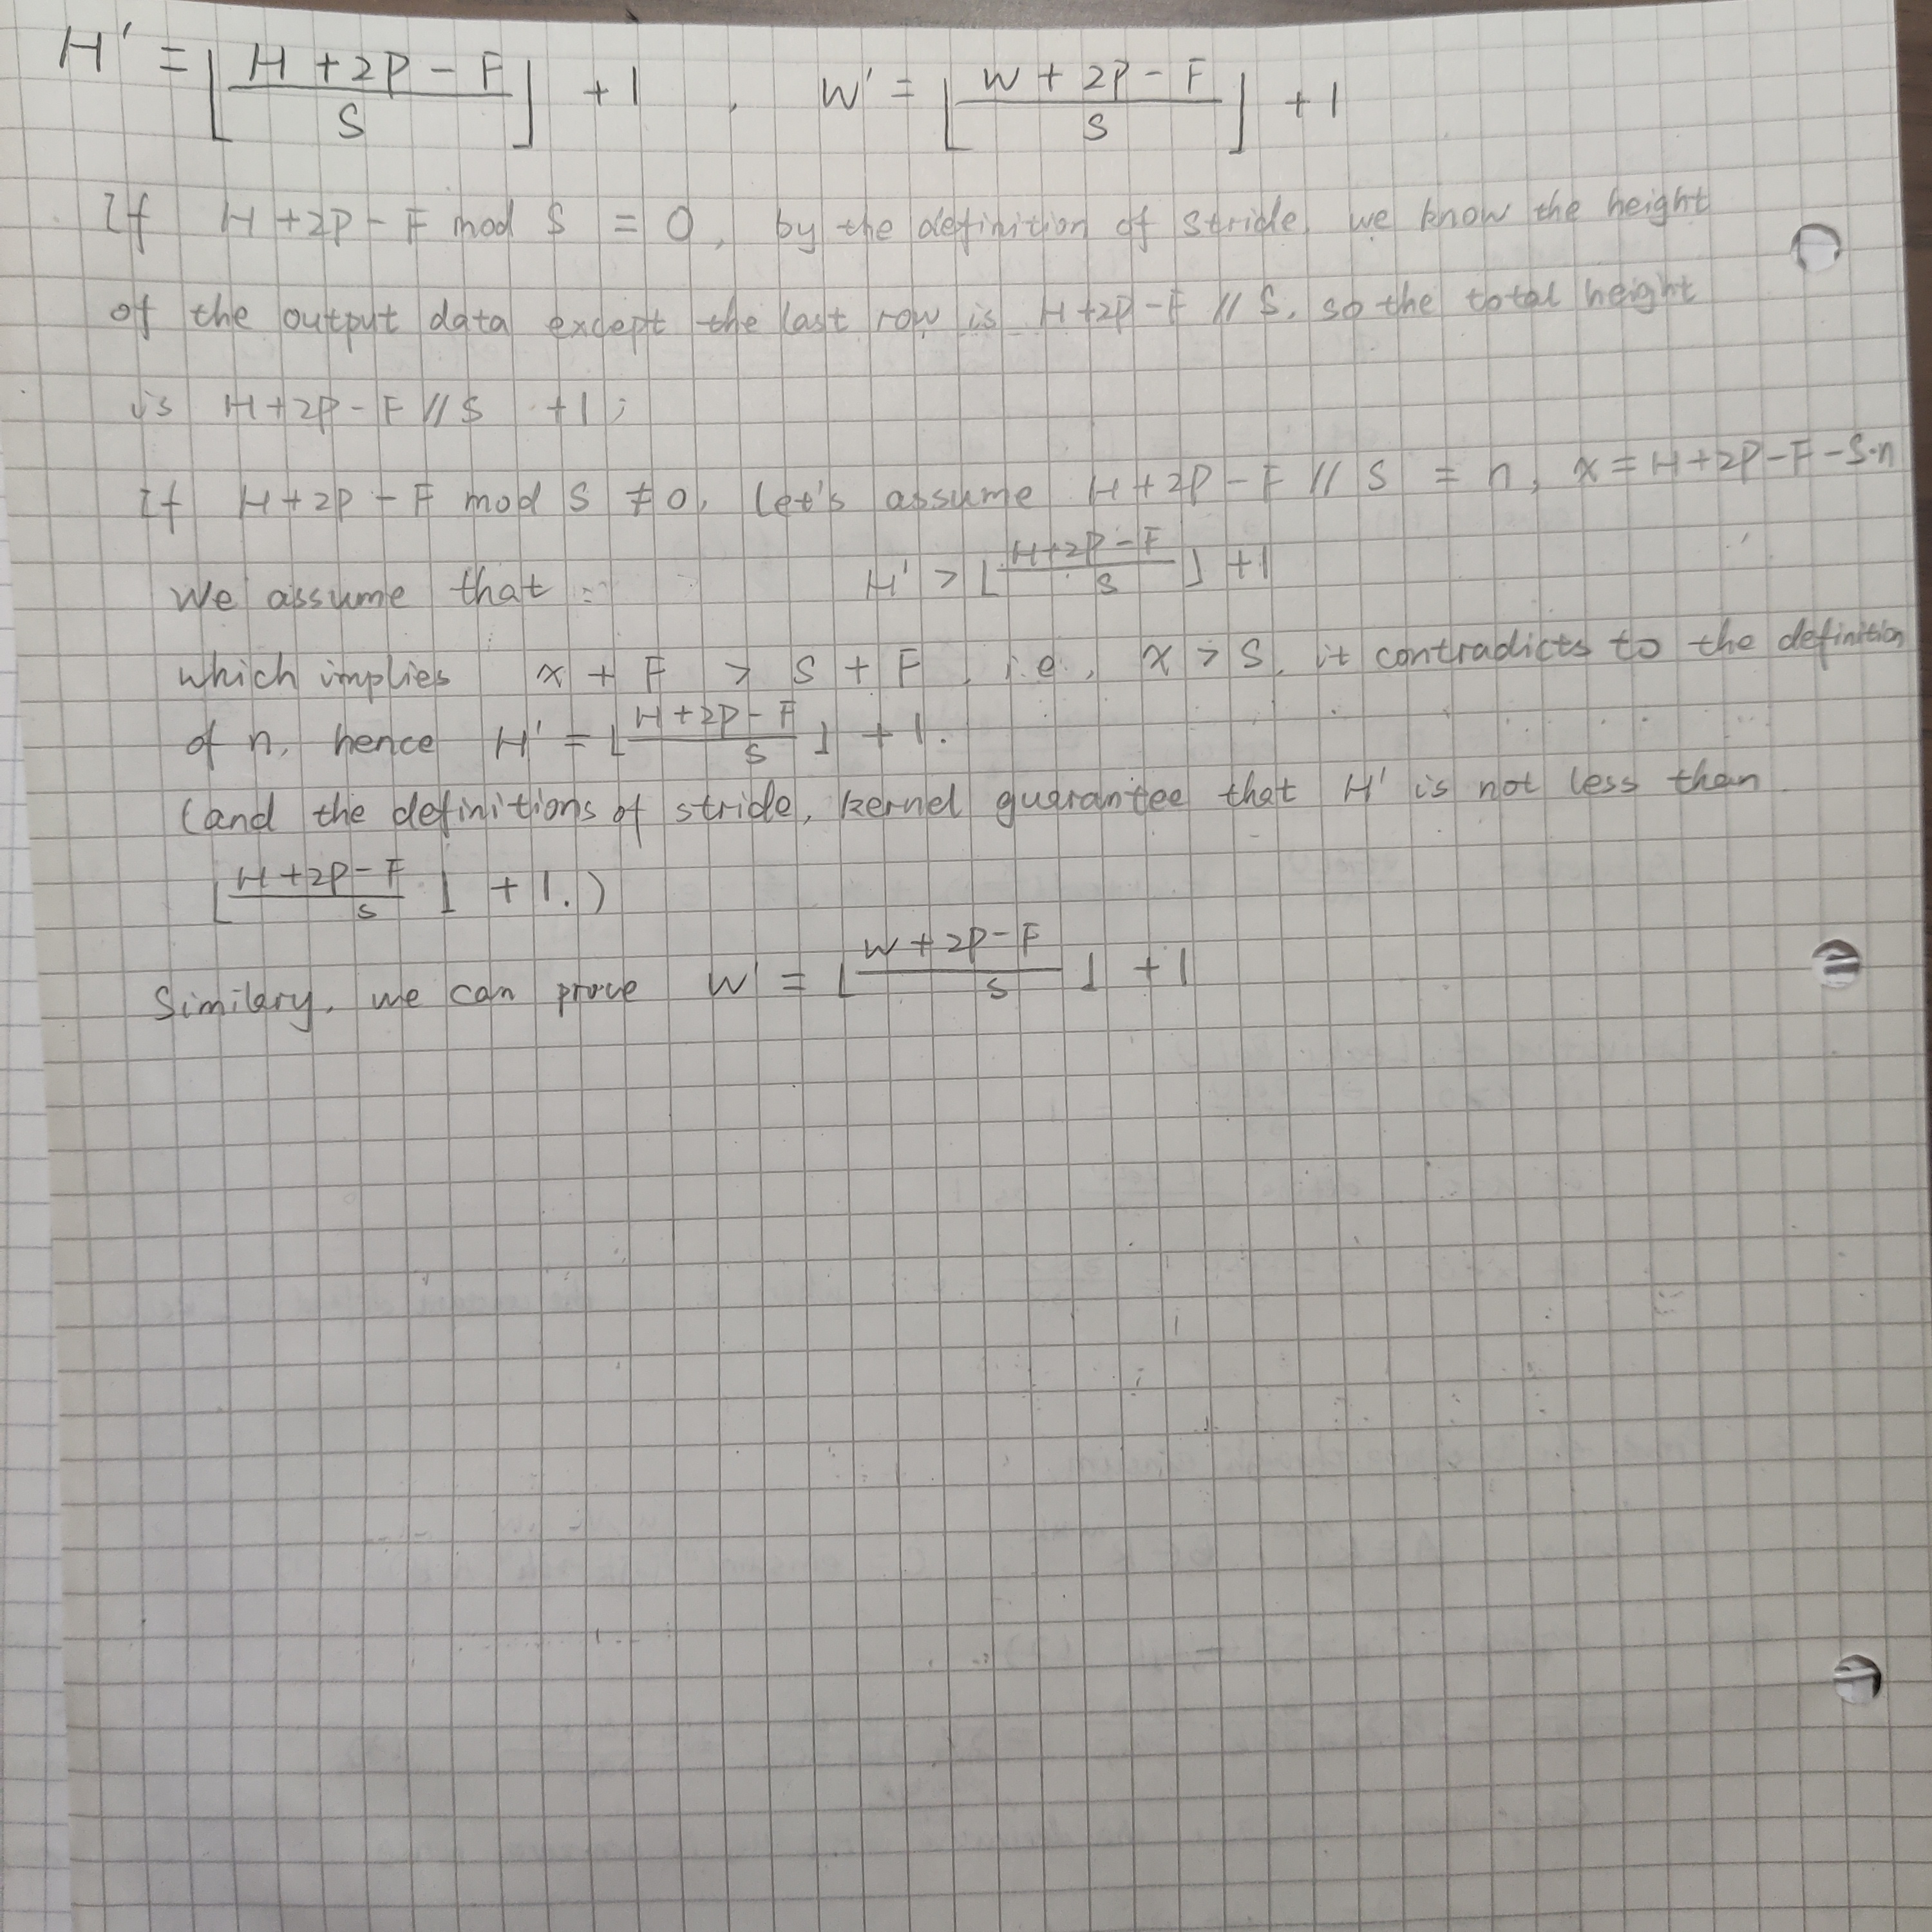 H' = ⌊(H + 2P - F)/S⌋ + 1 , W' = ⌊(W + 2P - F)/S⌋ + 1
If H + 2P - F mod S = 0, by the definition of stride, we know the height
of the output data except the last row is H + 2P - F // S, so the total height
is H + 2P - F // S + 1;
If H + 2P - F mod S ≠ 0, let's assume H + 2P - F // S = n, x = H + 2P - F - S·n
We assume that: H' > ⌊(H + 2P - F)/S⌋ + 1
which implies x + F > S + F, i.e., x > S, it contradicts to the definition
of n, hence H' = ⌊(H + 2P - F)/S⌋ + 1.
(and the definitions of stride, kernel guarantee that H' is not less than
⌊(H + 2P - F)/S⌋ + 1.)
Similary, we can prove W' = ⌊(W + 2P - F)/S⌋ + 1